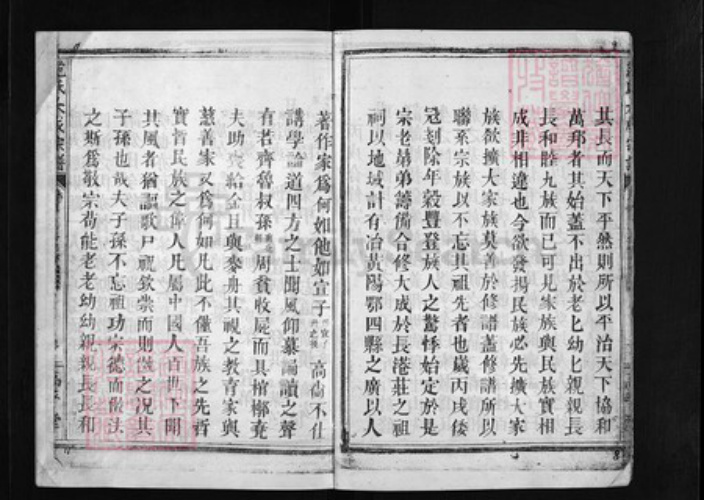 其長而天下平然則所以平治天下協和
萬邦者其始蓋不出於老匕幼匕親親長
長和睦九族而已可見家族與民族實相
成非相違也今欲發揚民族必先擴大家
族欲擴大家族莫善於修譜蓋修譜所以
聯系宗族以不忘其祖先者也歲丙戌倭
寇剗除年穀豐登族人之驚悸始定於是
宗老弟弟籌備合修大成於長港莊之祖
祠以地域計有冶黃陽鄂四縣之廣以人
著作家爲何如他如宣子 高尚不仕
講學論道四方之士聞風仰慕誦讀之聲
有若齊魯叔孫 周貧收屍而具棺槨堯
夫助喪給金且與麥舟其視之教育家與
慈善家又爲何如凡此不僅吾族之先哲
實皆民族之偉人凡屬中國人百世下聞
其風者猶謳歌尸祝欽崇而則傚之況其
子孫也哉夫子孫不忘祖功宗德而倣法
之斯爲敬宗苟能老老幼幼親親長長和